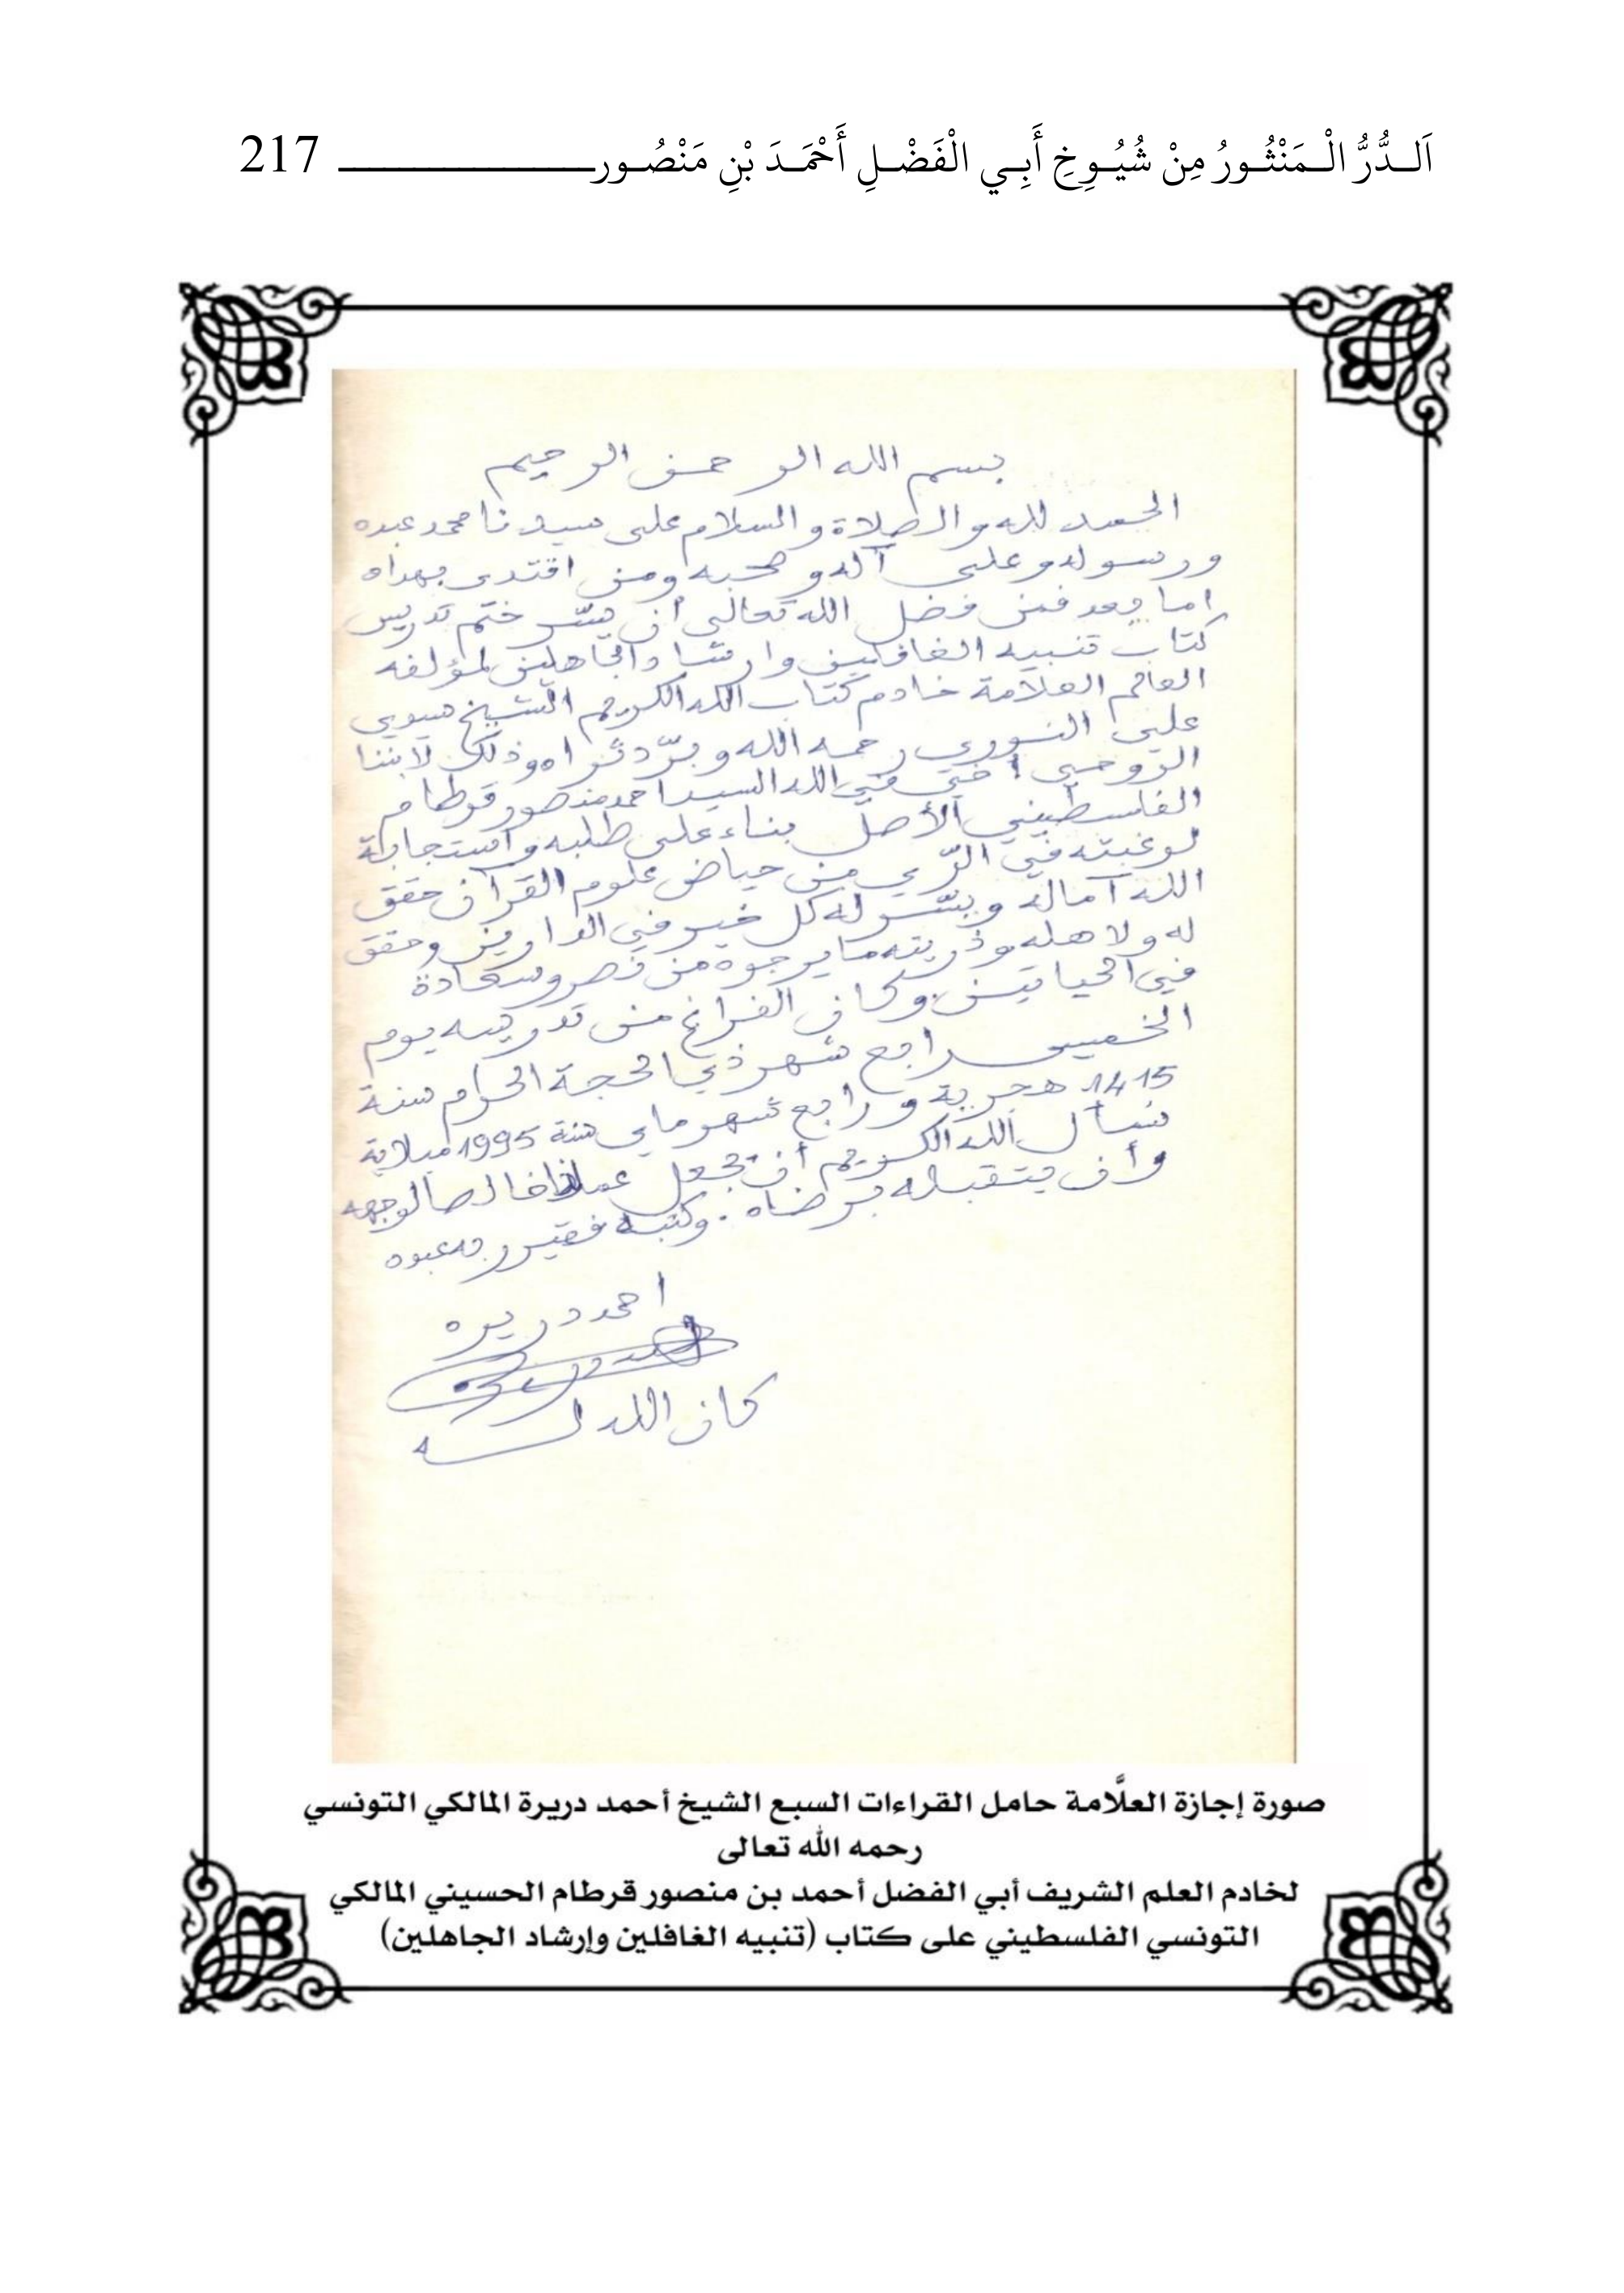 اَلـدُّرُّ الْـمَنْثُـورُ مِنْ شُيُـوخِ أَبِـي الْفَضْـلِ أَحْمَـدَ بْنِ مَنْصُـورـــــــــــــــــــ 217
بسم الله الرحمن الرحيم
الحمد لله والصلاة والسلام على سيدنا محمد عبده
ورسوله وعلى آله وصحبه ومن اقتدى بهداه
اما بعد فمن فضل الله تعالى أن يسّر ختم تدريس
كتاب تنبيه الغافلين وارشاد الجاهلين لمؤلفه
العالم العلامة خادم كتاب الله الكريم الشيخ سيدي
علي النوري رحمه الله وبرّد ثراه وذلك لابننا
الروحي أخي في الله السيد احمد منصور قرطام
الفلسطيني الأصل بناء على طلبه واستجابة
لرغبته في الرّي من حياض علوم القرآن حقق
الله آماله ويسّر له كل خير في الدارين وحقق
له ولاهله وذريته ما يرجوه من نصر وسعادة
في الحياتين وكان الفراغ من تدريسه يوم
الخميس رابع شهر ذي الحجة الحرام سنة
1415 هجرية ورابع شهر ماي سنة 1995 ميلادية
نسأل الله الكريم أن يجعل عملنا خالصا لوجهه
وأن يتقبله برضاه . وكتبه فقير ربه عبده
احمد دريره
كان الله له
صورة إجازة العلَّامة حامل القراءات السبع الشيخ أحمد دريرة المالكي التونسي
رحمه الله تعالى
لخادم العلم الشريف أبي الفضل أحمد بن منصور قرطام الحسيني المالكي
التونسي الفلسطيني على كتاب (تنبيه الغافلين وإرشاد الجاهلين)